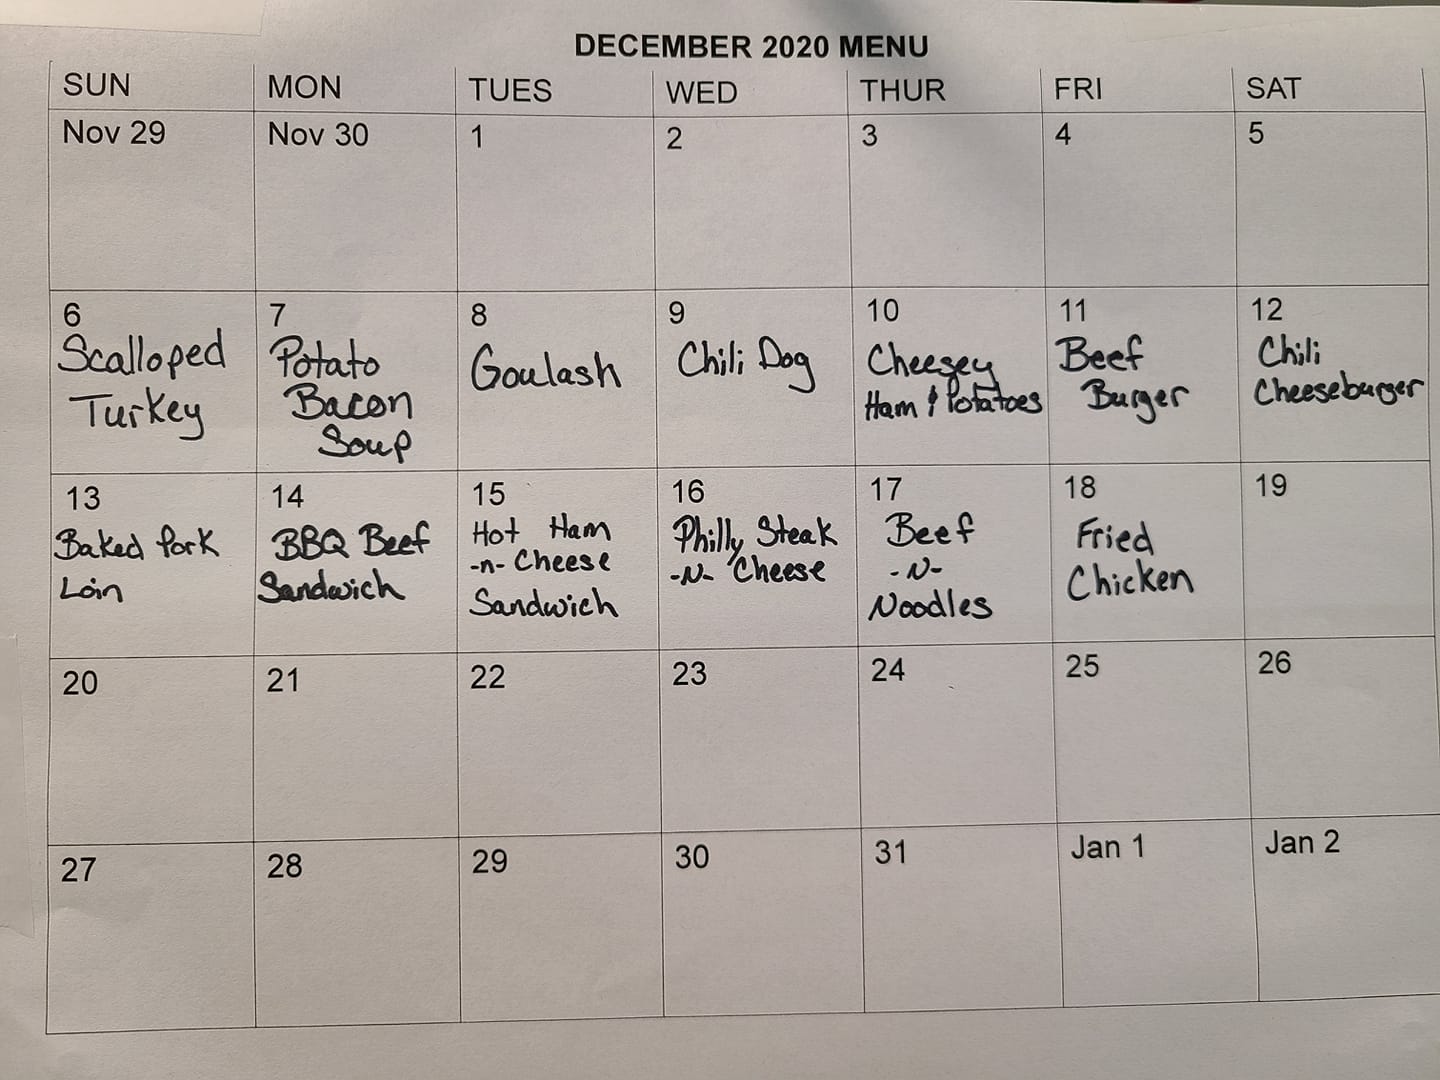 DECEMBER 2020 MENU
SUN MON TUES WED THUR FRI SAT
Nov 29 Nov 30 1 2 3 4 5
6
Scalloped
Turkey
7
Potato
Bacon
Soup
8
Goulash
9
Chili Dog
10
Cheesey
Ham & Potatoes
11
Beef
Burger
12
Chili
Cheeseburger
13
Baked Pork
Loin
14
BBQ Beef
Sandwich
15
Hot Ham
-n- Cheese
Sandwich
16
Philly Steak
-N- Cheese
17
Beef
-N-
Noodles
18
Fried
Chicken
19
20 21 22 23 24 25 26
27 28 29 30 31 Jan 1 Jan 2